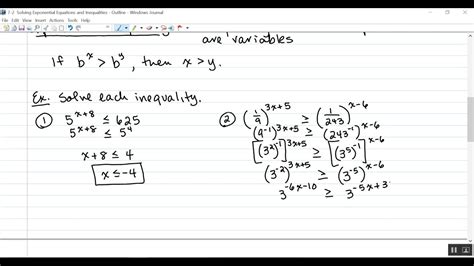 Solving Exponential Equations and Inequalities - Outline - Windows Journal
File Edit View Insert Actions Tools Help
are variables
If b^x > b^y, then x > y.
Ex: Solve each inequality.
① 5^(x+8) ≤ 625
5^(x+8) ≤ 5^4
x+8 ≤ 4
x ≤ -4
② (1/9)^(3x+5) ≥ (1/243)^(x-6)
(9^-1)^(3x+5) ≥ (243^-1)^(x-6)
[(3^2)^-1]^(3x+5) ≥ [(3^5)^-1]^(x-6)
(3^-2)^(3x+5) ≥ (3^-5)^(x-6)
3^(-6x-10) ≥ 3^(-5x+3